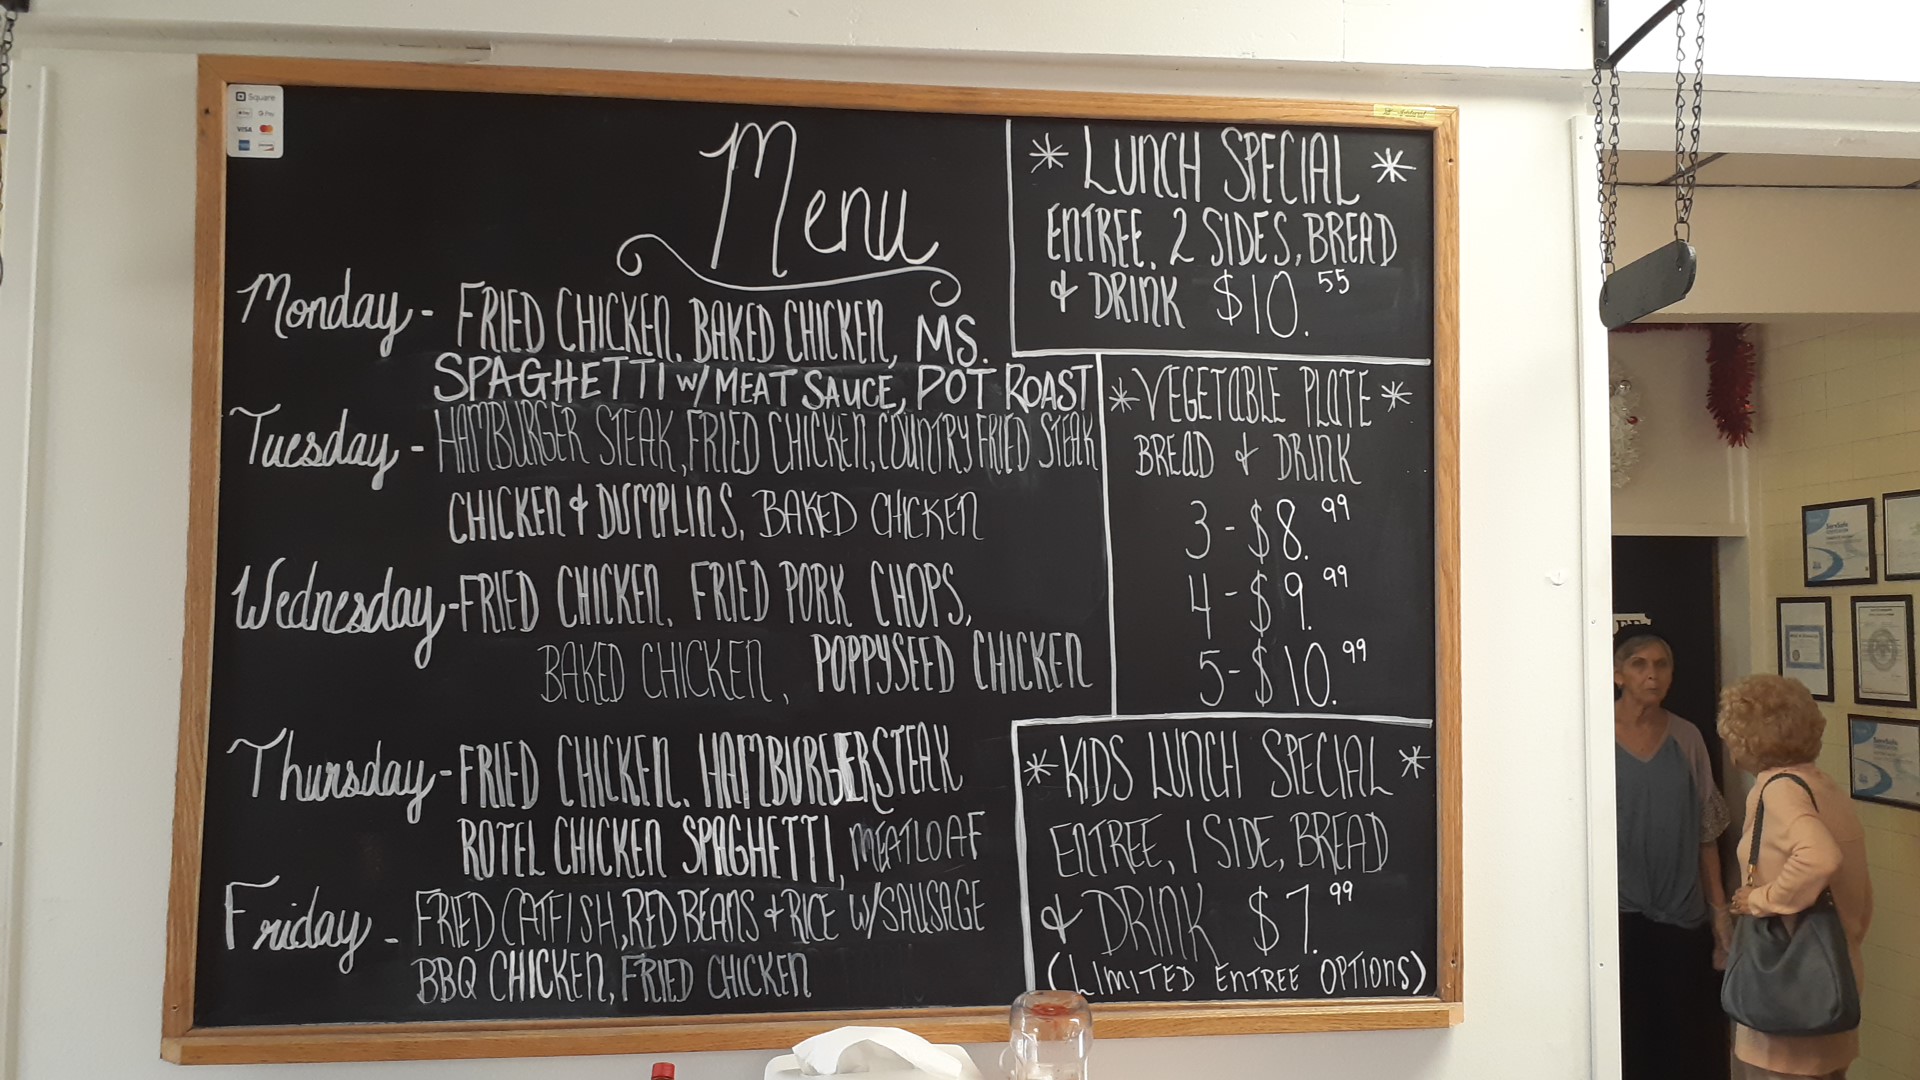 Square
Pay G Pay
VISA
Menu
Monday - FRIED CHICKEN, BAKED CHICKEN, MS.
SPAGHETTI W/ MEAT SAUCE, POT ROAST
Tuesday - HAMBURGER STEAK, FRIED CHICKEN, COUNTRY FRIED STEAK
CHICKEN & DUMPLINS, BAKED CHICKEN
Wednesday - FRIED CHICKEN, FRIED PORK CHOPS,
BAKED CHICKEN, POPPYSEED CHICKEN
Thursday - FRIED CHICKEN, HAMBURGER STEAK
ROTEL CHICKEN SPAGHETTI, MEATLOAF
Friday - FRIED CATFISH, RED BEANS & RICE W/ SAUSAGE
BBQ CHICKEN, FRIED CHICKEN
* LUNCH SPECIAL *
ENTREE, 2 SIDES, BREAD
& DRINK $10.55
* VEGETABLE PLATE *
BREAD & DRINK
3 - $8.99
4 - $9.99
5 - $10.99
* KIDS LUNCH SPECIAL *
ENTREE, 1 SIDE, BREAD
& DRINK $7.99
(LIMITED ENTREE OPTIONS)
ServSafe
ServSafe